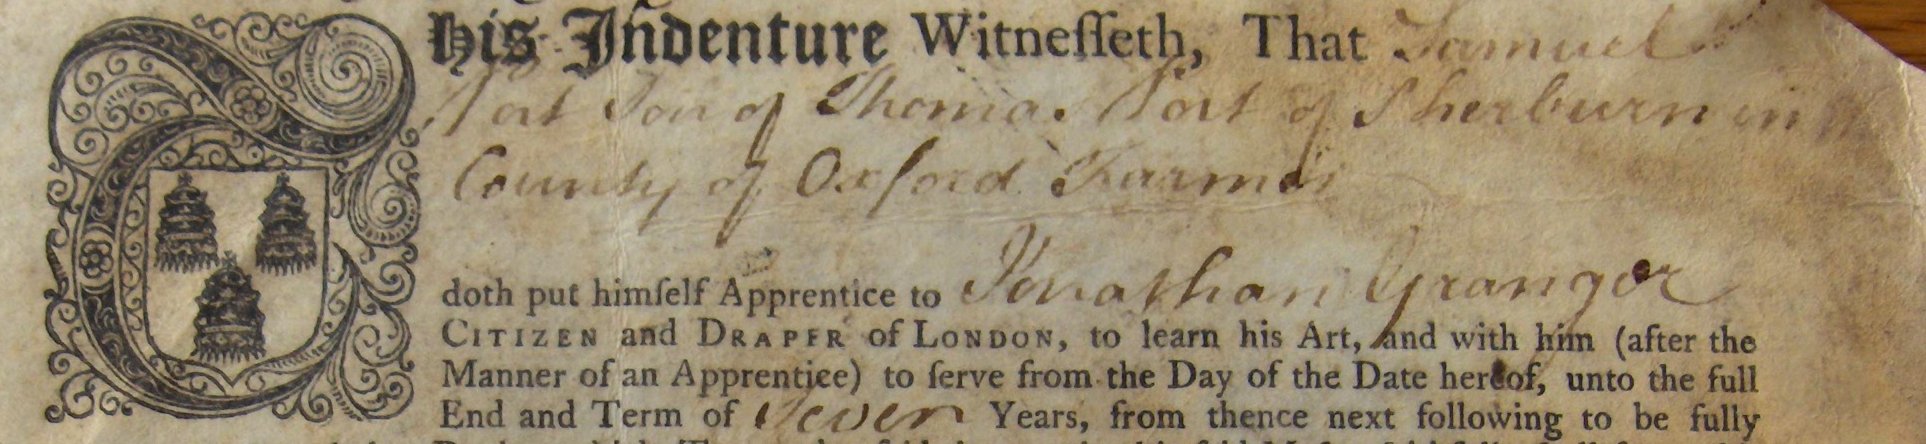 This Indenture Witneſſeth, That Samuel
Port Son of Thomas Port of Sherburn in
County of Oxford Farmer
doth put himſelf Apprentice to Jonathan Granger
CITIZEN and DRAPER of LONDON, to learn his Art, and with him (after the
Manner of an Apprentice) to ſerve from the Day of the Date hereof, unto the full
End and Term of Seven Years, from thence next following to be fully